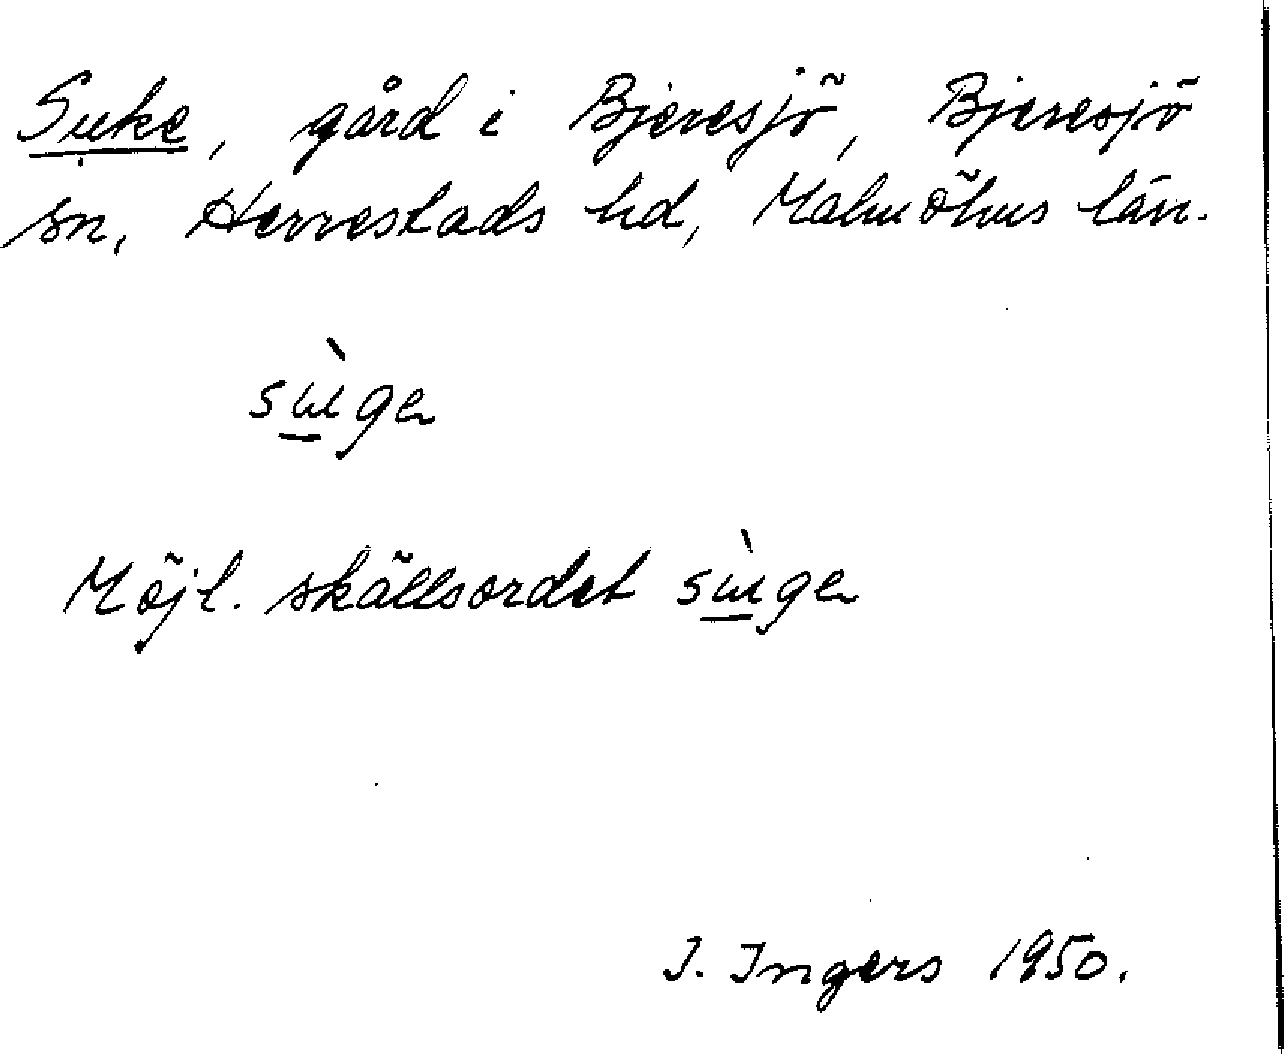 Suke, gård i Bjeresjö, Bjeresjö
sn, Herrestads hd, Malmöhus län.
sɯ̱̀gə
Möjl. skällsordet sɯ̱̀gə
I. Ingers 1950.